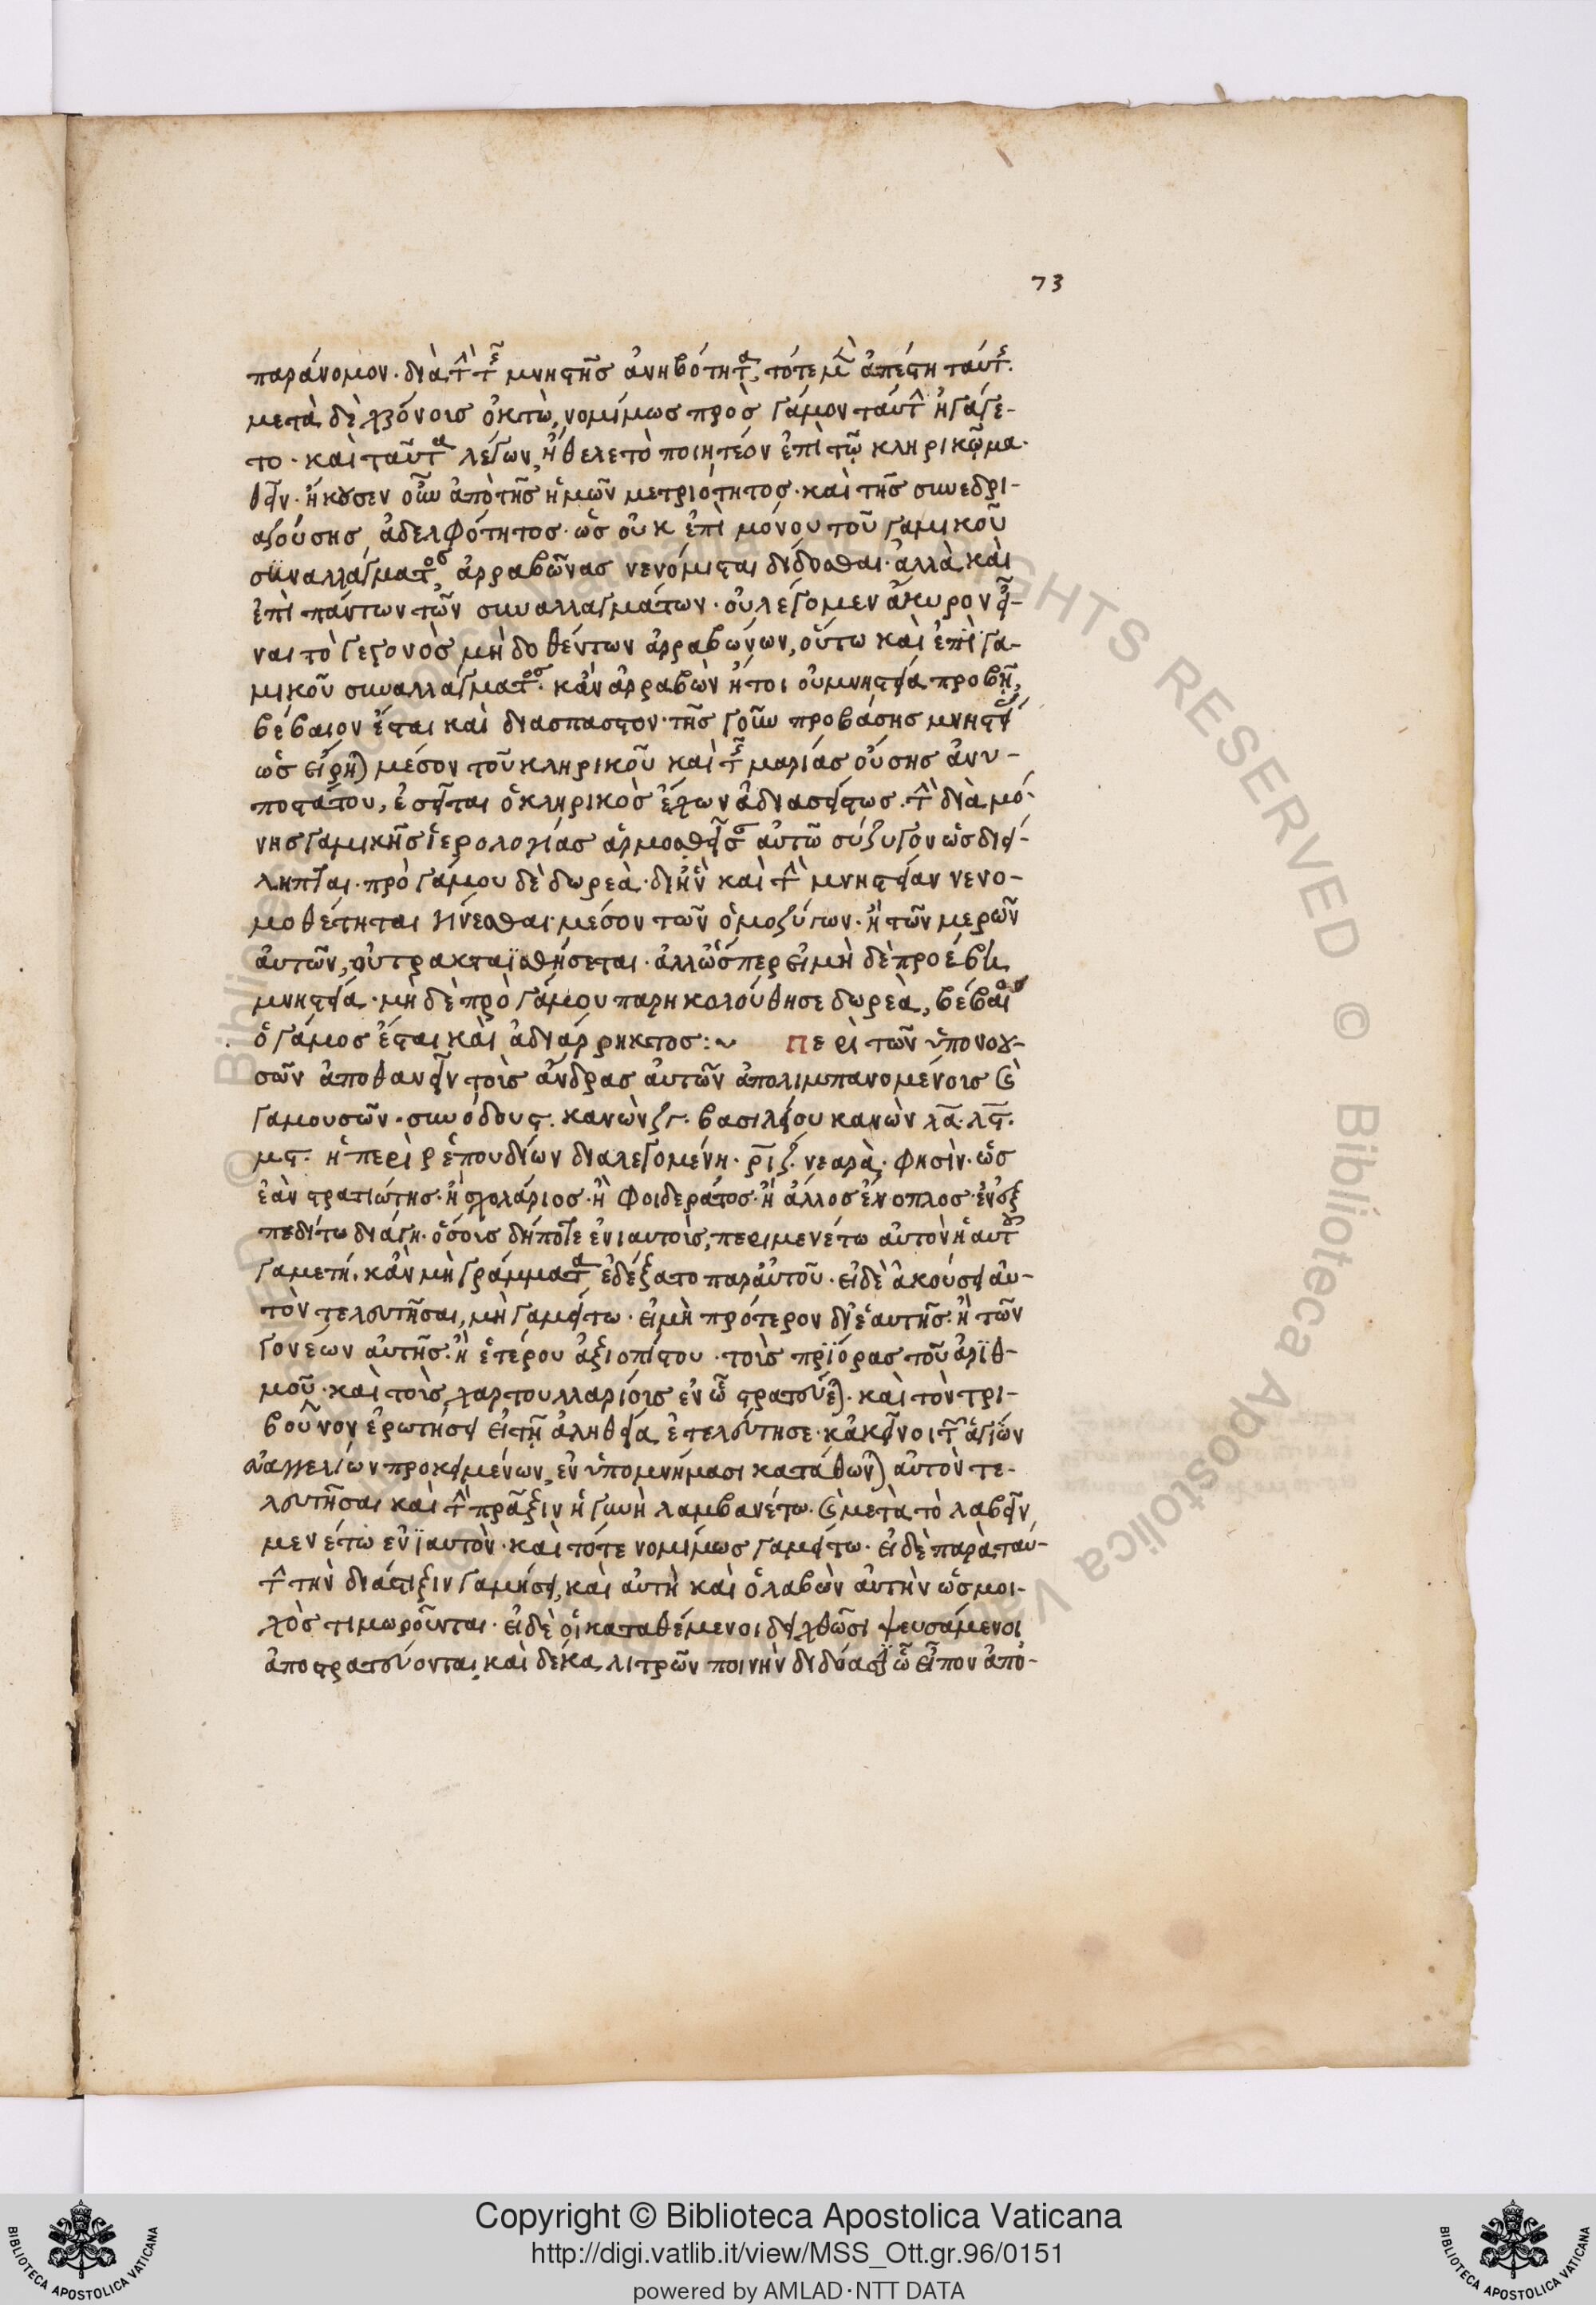 73
παράνομον· διὰ τὴν τῆς μνηστῆς ἀνηβότητα, τότε μὲν ἀπέστη ταύτης·
μετὰ δὲ χρόνους ὀκτὼ, νομίμως πρὸς γάμον ταύτην ἠγάγε-
το· καὶ ταῦτα λέγων, ἤθελε τὸ ποιητέον ἐπὶ τῷ κληρικῷ μα-
θεῖν· ἤκουσεν οὖν ἀπὸ τῆς ἡμῶν μετριότητος· καὶ τῆς συνεδρι-
αζούσης ἀδελφότητος· ὡς οὐκ ἐπὶ μόνου τοῦ γαμικοῦ
συναλλάγματος, ἀρραβῶνας νενόμισται δίδοσθαι· ἀλλὰ καὶ
ἐπὶ πάντων τῶν συναλλαγμάτων· οὐ λέγομεν ἄκυρον εἶ-
ναι τὸ γεγονὸς μὴ δοθέντων ἀρραβώνων, οὕτω καὶ ἐπὶ γα-
μικοῦ συναλλάγματος· κἂν ἀρραβὼν ἤτοι οὐ μνηστεία προβῇ,
βέβαιον ἔσται καὶ διασπαστον· τῆς γοῦν προβάσης μνηστείας
ὡς εἴρηται μέσον τοῦ κληρικοῦ καὶ τῆς μαρίας οὔσης ἀνυ-
ποστάτου, ἐσεῖται ὁ κληρικὸς ἔχων ἀδιασείστως· τὴν διὰ μό-
νης γαμικῆς ἱερολογίας ἁρμοσθεῖσαν αὐτῶ σύζυγον ὡς διεί-
ληπται· πρὸ γάμου δὲ δωρεὰ· δι' ἣν καὶ τὴν μνηστείαν νενο-
μοθέτηται γίνεσθαι· μέσον τῶν ὁμοζύγων· ἢ τῶν μερῶν
αὐτῶν, οὐ τρακταϊσθήσεται· ἀλλ' ὥσπερ εἰ μὴ δὲ προέβη
μνηστεία· μὴ δὲ πρὸ γάμου παρηκολούθησε δωρεὰ, βέβαιος
ὁ γάμος ἔσται καὶ ἀδιάρρηκτος:~ Περὶ τῶν ὑπονοου-
σῶν ἀποθανεῖν τοὺς ἄνδρας αὐτῶν ἀπολιμπανομένους καὶ
γαμουσῶν· συνόδου ϛ. κανὼν ϟγ. βασιλείου κανὼν λα. λϛ.
μϛ. ἡ περὶ ῥεπουδίων διαλεγομένη· ριζ. νεαρὰ· φησὶν· ὡς
ἐὰν στρατιώτης· ἢ σχολάριος· ἢ φοιδεράτος· ἢ ἄλλος ἔνοπλος· ἐν ἐξ
πεδίτω διάγη· ὅσους δήποτε ἐνιαυτοὺς, περιμενέτω αὐτὸν ἡ αὐτοῦ
γαμετή. κἂν μὴ γράμματα ἐδέξατο παρ' αὐτοῦ· εἰ δὲ ἀκούσει αὐ-
τὸν τελευτῆσαι, μὴ γαμείτω· εἰ μὴ πρότερον δι' ἑαυτῆς· ἢ τῶν
γονέων αὐτῆς· ἢ ἑτέρου ἀξιοπίστου· τοὺς πρϊόρας τοῦ ἀριθ-
μοῦ· καὶ τοὺς χαρτουλλαρίους ἐν ὧ στρατεύεται· καὶ τὸν τρι-
βοῦνον ἐρωτήσει εἰ τῇ ἀληθεία ἐτελεύτησε· κἀκεῖνοι τῶν ἁγίων
εὐαγγελίων προκειμένων, ἐν ὑπομνήμασι κατάθωνται αὐτὸν τε-
λευτῆσαι καὶ τὴν πρᾶξιν ἡ γυνὴ λαμβανέτω· καὶ μετὰ τὸ λαβεῖν,
μενέτω ἐνϊαυτὸν· καὶ τότε νομίμως γαμείτω· εἰ δὲ παρὰ ταύ-
την τὴν διάταξιν γαμήσει, καὶ αὐτὴ καὶ ὁ λαβὼν αὐτὴν ὡς μοι-
χὸς τιμωροῦνται· εἰ δὲ οἱ καταθέμενοι δειχθῶσι ψευσάμενοι
ἀποστρατεύονται, καὶ δέκα λιτρῶν ποινὴν διδόασιν ὧ εἶπον ἀπο-
Copyright © Biblioteca Apostolica Vaticana
http://digi.vatlib.it/view/MSS_Ott.gr.96/0151
powered by AMLAD·NTT DATA